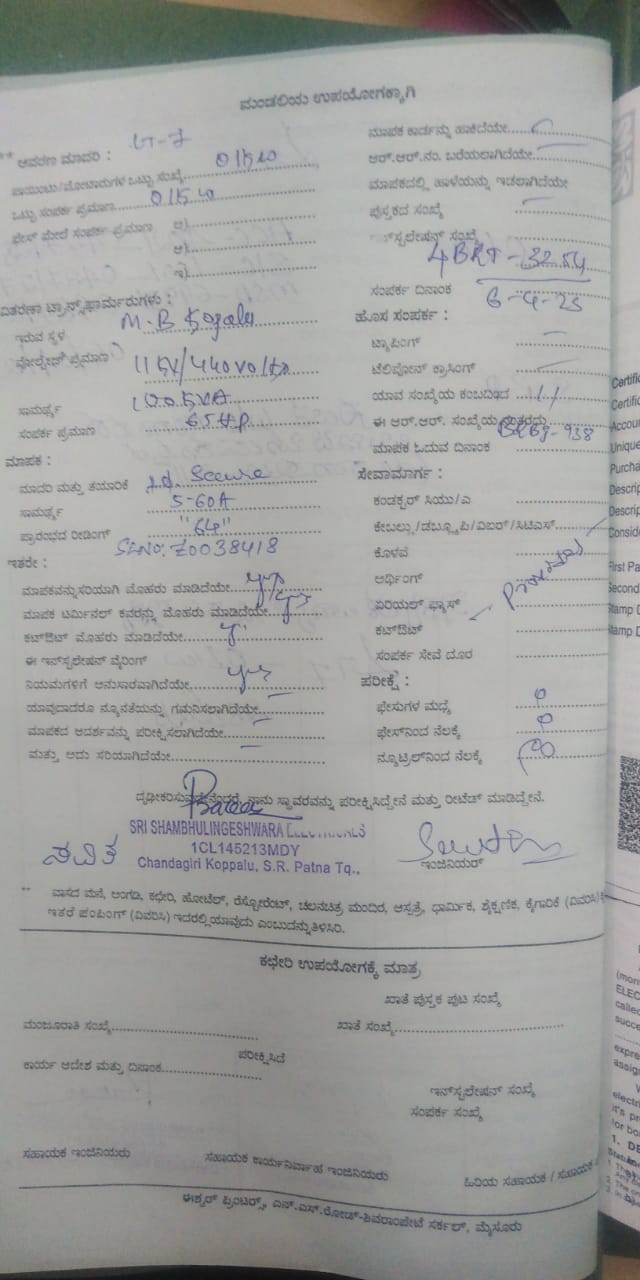 ಮಂಡಲಿಯ ಉಪಯೋಗಕ್ಕಾಗಿ
** ಆವರಣ ಮಾದರಿ :
ಪಾಯಿಂಟು/ಮೋಟಾರುಗಳ ಒಟ್ಟು ಸಂಖ್ಯೆ
ಒಟ್ಟು ಸಂಪರ್ಕ ಪ್ರಮಾಣ
ಫೇಸ್ ಮೇಲೆ ಸಂಪರ್ಕ ಪ್ರಮಾಣ ಅ)
ಆ)
ಇ)
ವಿತರಣಾ ಟ್ರಾನ್ಸ್‌ಫಾರ್ಮರುಗಳು :
ಇರುವ ಸ್ಥಳ M.B Kogalu
ವೋಲ್ಟೇಜ್ ಪ್ರಮಾಣ 11KV/440volts
ಸಾಮರ್ಥ್ಯ 100KVA
ಸಂಪರ್ಕ ಪ್ರಮಾಣ 65HP
ಮಾಪಕ :
ಮಾದರಿ ಮತ್ತು ತಯಾರಿಕೆ
ಸಾಮರ್ಥ್ಯ 5-60A
ಪ್ರಾರಂಭದ ರೀಡಿಂಗ್ "64"
SLNO: Z0038418
ಇತರೇ :
ಮಾಪಕವನ್ನುಸರಿಯಾಗಿ ಮೊಹರು ಮಾಡಿದೆಯೇ yes
ಮಾಪಕ ಟರ್ಮಿನಲ್ ಕವರನ್ನು ಮೊಹರು ಮಾಡಿದೆಯೇ yes
ಕಟ್‌ಔಟ್ ಮೊಹರು ಮಾಡಿದೆಯೇ
ಈ ಇನ್‌ಸ್ಟಲೇಷನ್ ವೈರಿಂಗ್
ನಿಯಮಗಳಿಗೆ ಅನುಸಾರವಾಗಿದೆಯೇ yes
ಯಾವುದಾದರೂ ನ್ಯೂನತೆಯನ್ನು ಗಮನಿಸಲಾಗಿದೆಯೇ
ಮಾಪಕದ ಆದರ್ಶವನ್ನು ಪರೀಕ್ಷಿಸಲಾಗಿದೆಯೇ
ಮತ್ತು ಅದು ಸರಿಯಾಗಿದೆಯೇ
ಮಾಪಕ ಕಾರ್ಡನ್ನು ಹಾಕಿದೆಯೇ
ಆರ್.ಆರ್.ನಂ. ಬರೆಯಲಾಗಿದೆಯೇ
ಮಾಪಕದಲ್ಲಿ ಹಾಳೆಯನ್ನು ಇಡಲಾಗಿದೆಯೇ
ಪುಸ್ತಕದ ಸಂಖ್ಯೆ
ಇನ್‌ಸ್ಟಲೇಷನ್ ಸಂಖ್ಯೆ
ಸಂಪರ್ಕ ದಿನಾಂಕ 6-4-23
ಹೊಸ ಸಂಪರ್ಕ :
ಟ್ಯಾಪಿಂಗ್
ಟೆಲಿಫೋನ್ ಕ್ರಾಸಿಂಗ್
ಯಾವ ಸಂಖ್ಯೆಯ ಕಂಬದಿಂದ
ಈ ಆರ್.ಆರ್. ಸಂಖ್ಯೆಯ ನಂತರದ್ದು
ಮಾಪಕ ಓದುವ ದಿನಾಂಕ
ಸೇವಾಮಾರ್ಗ :
ಕಂಡಕ್ಟರ್ ಸಿಯು/ಎ
ಕೇಬಲ್ಲು/ಡಬ್ಲ್ಯೂಪಿ/ವಿಐಆರ್/ಸಿಟಿಎಸ್
ಕೊಳವೆ
ಅರ್ಥಿಂಗ್
ಏರಿಯಲ್ ಫ್ಯೂಸ್
ಕಟ್‌ಔಟ್
ಸಂಪರ್ಕ ಸೇವೆ ದೂರ
ಪರೀಕ್ಷೆ :
ಫೇಸುಗಳ ಮಧ್ಯೆ
ಫೇಸ್‌ನಿಂದ ನೆಲಕ್ಕೆ
ನ್ಯೂಟ್ರಲ್‌ನಿಂದ ನೆಲಕ್ಕೆ
ದೃಢೀಕರಿಸುವುದೇನೆಂದರೆ, ನಾನು ಸ್ಥಾವರವನ್ನು ಪರೀಕ್ಷಿಸಿದ್ದೇನೆ ಮತ್ತು ರೀಟೆಡ್ ಮಾಡಿದ್ದೇನೆ.
SRI SHAMBHULINGESHWARA ELECTRICALS
1CL145213MDY
Chandagiri Koppalu, S.R. Patna Tq.,
ಸವಿತ
ಇಂಜಿನಿಯರ್
** ವಾಸದ ಮನೆ, ಅಂಗಡಿ, ಕಛೇರಿ, ಹೋಟೆಲ್, ರೆಸ್ಟೋರೆಂಟ್, ಚಲನಚಿತ್ರ ಮಂದಿರ, ಆಸ್ಪತ್ರೆ, ಧಾರ್ಮಿಕ, ಶೈಕ್ಷಣಿಕ, ಕೈಗಾರಿಕೆ (ವಿವರಿಸಿ)
ಇತರೆ ಪಂಪಿಂಗ್ (ವಿವರಿಸಿ) ಇದರಲ್ಲಿಯಾವುದು ಎಂಬುದನ್ನು ತಿಳಿಸಿರಿ.
ಕಛೇರಿ ಉಪಯೋಗಕ್ಕೆ ಮಾತ್ರ
ಖಾತೆ ಪುಸ್ತಕ ಪುಟ ಸಂಖ್ಯೆ
ಮಂಜೂರಾತಿ ಸಂಖ್ಯೆ
ಖಾತೆ ಸಂಖ್ಯೆ
ಪರೀಕ್ಷಿಸಿದೆ
ಕಾರ್ಯ ಆದೇಶ ಮತ್ತು ದಿನಾಂಕ
ಇನ್‌ಸ್ಟಲೇಷನ್ ಸಂಖ್ಯೆ
ಸಂಪರ್ಕ ಸಂಖ್ಯೆ
ಸಹಾಯಕ ಇಂಜಿನಿಯರು
ಸಹಾಯಕ ಕಾರ್ಯನಿರ್ವಾಹ ಇಂಜಿನಿಯರು
ಹಿರಿಯ ಸಹಾಯಕ / ಸಹಾಯಕ
ಈಶ್ವರ್ ಪ್ರಿಂಟರ್ಸ್, ಎನ್.ಎಸ್.ರೋಡ್-ಶಿವರಾಂಪೇಟೆ ಸರ್ಕಲ್, ಮೈಸೂರು